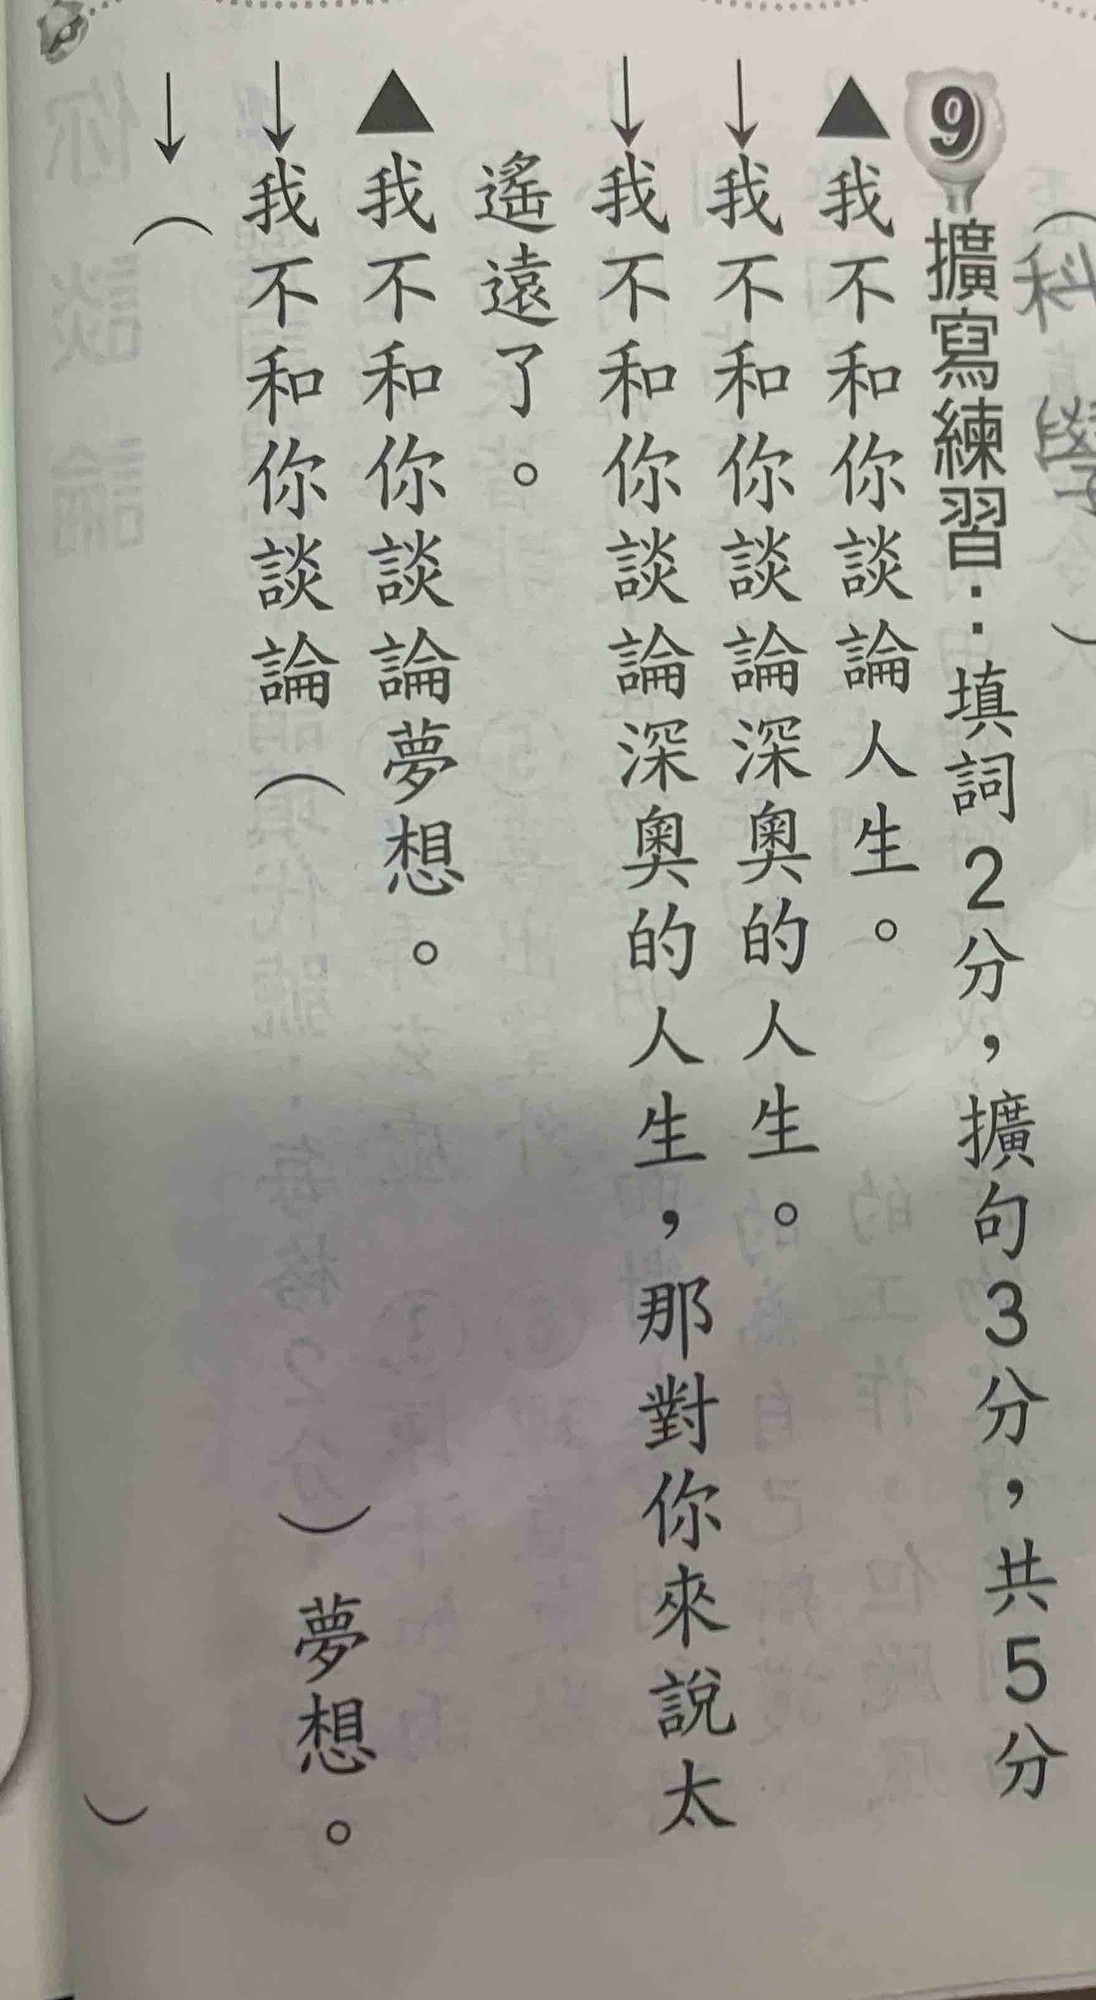 （科學
）
9 擴寫練習：填詞2分，擴句3分，共5分
▲我不和你談論人生。
↓我不和你談論深奧的人生。
↓我不和你談論深奧的人生，那對你來說太
遙遠了。
▲我不和你談論夢想。
↓我不和你談論（ ）夢想。
↓（ ）